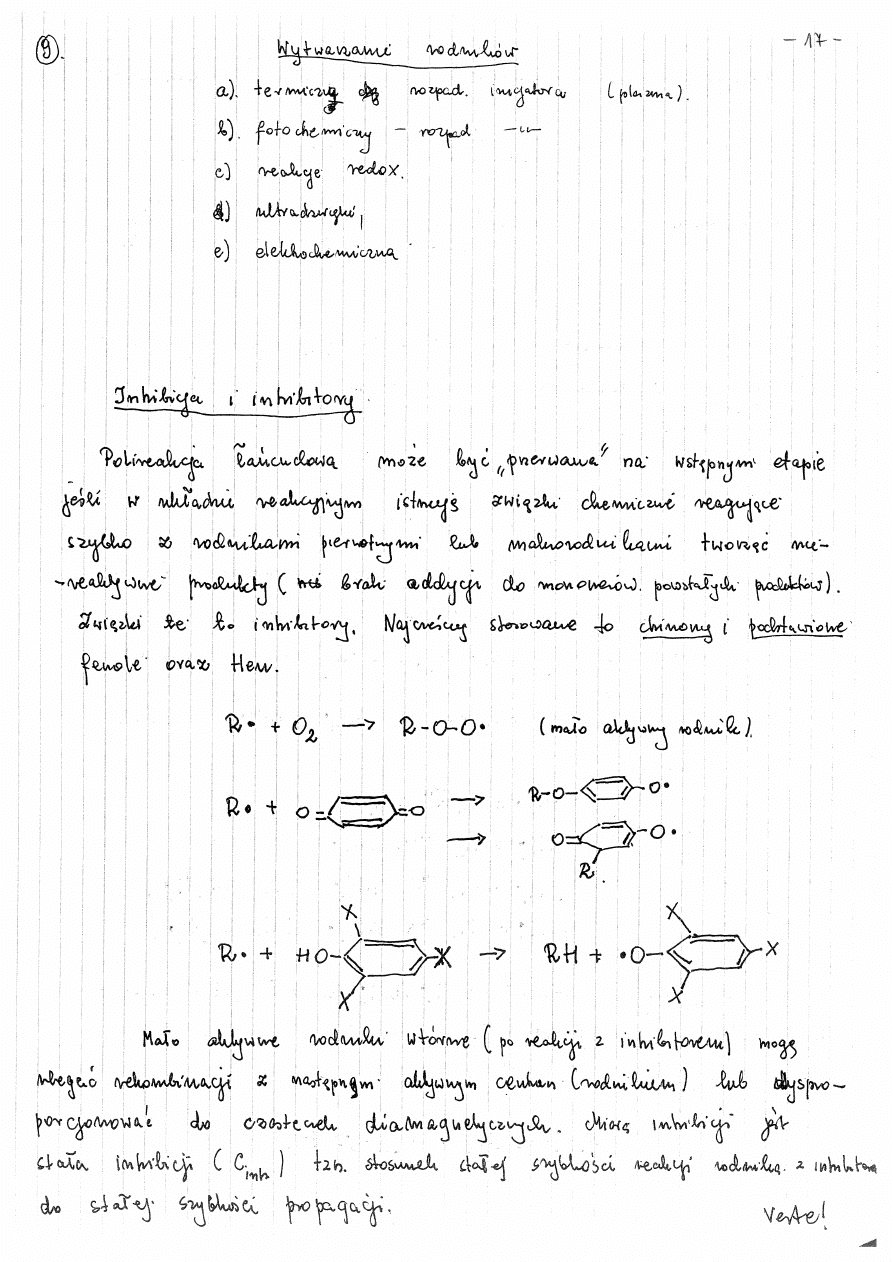 9. Wytwarzanie rodników - 17 -
a). termiczny rozpad. inicjatora (plazma).
b). fotochemiczny – rozpad -"-
c) reakcje redox.
d) ultradźwięki,
e) elektrochemiczna
Inhibicja i inhibitory
Polireakcja łańcuchowa może być „przerwana" na wstępnym etapie
jeśli w układzie reakcyjnym istnieją związki chemiczne reagujące
szybko z rodnikami pierwotnymi lub makrorodnikami tworząc nie-
-reaktywne produkty ( brak addycji do monomerów powstałych produktów).
Związki te to inhibitory. Najczęściej stosowane to chinony i podstawione
fenole oraz tlen.
R• + O2 → R-O-O• (mało aktywny rodnik).
R• + O= =O → R-O- -O•
→ O= -O•
R
X X
R• + HO- -X → RH + •O- -X
X X
Mało aktywne rodniki wtórne (po reakcji z inhibitorem) mogą
ulegać rekombinacji z następnym aktywnym centrum (rodnikiem) lub dyspro-
porcjonować do cząsteczek diamagnetycznych. Miarą inhibicji jest
stała inhibicji (Cinh) tzn. stosunek stałej szybkości reakcji rodnika z inhibitorem
do stałej szybkości propagacji.
Verte!